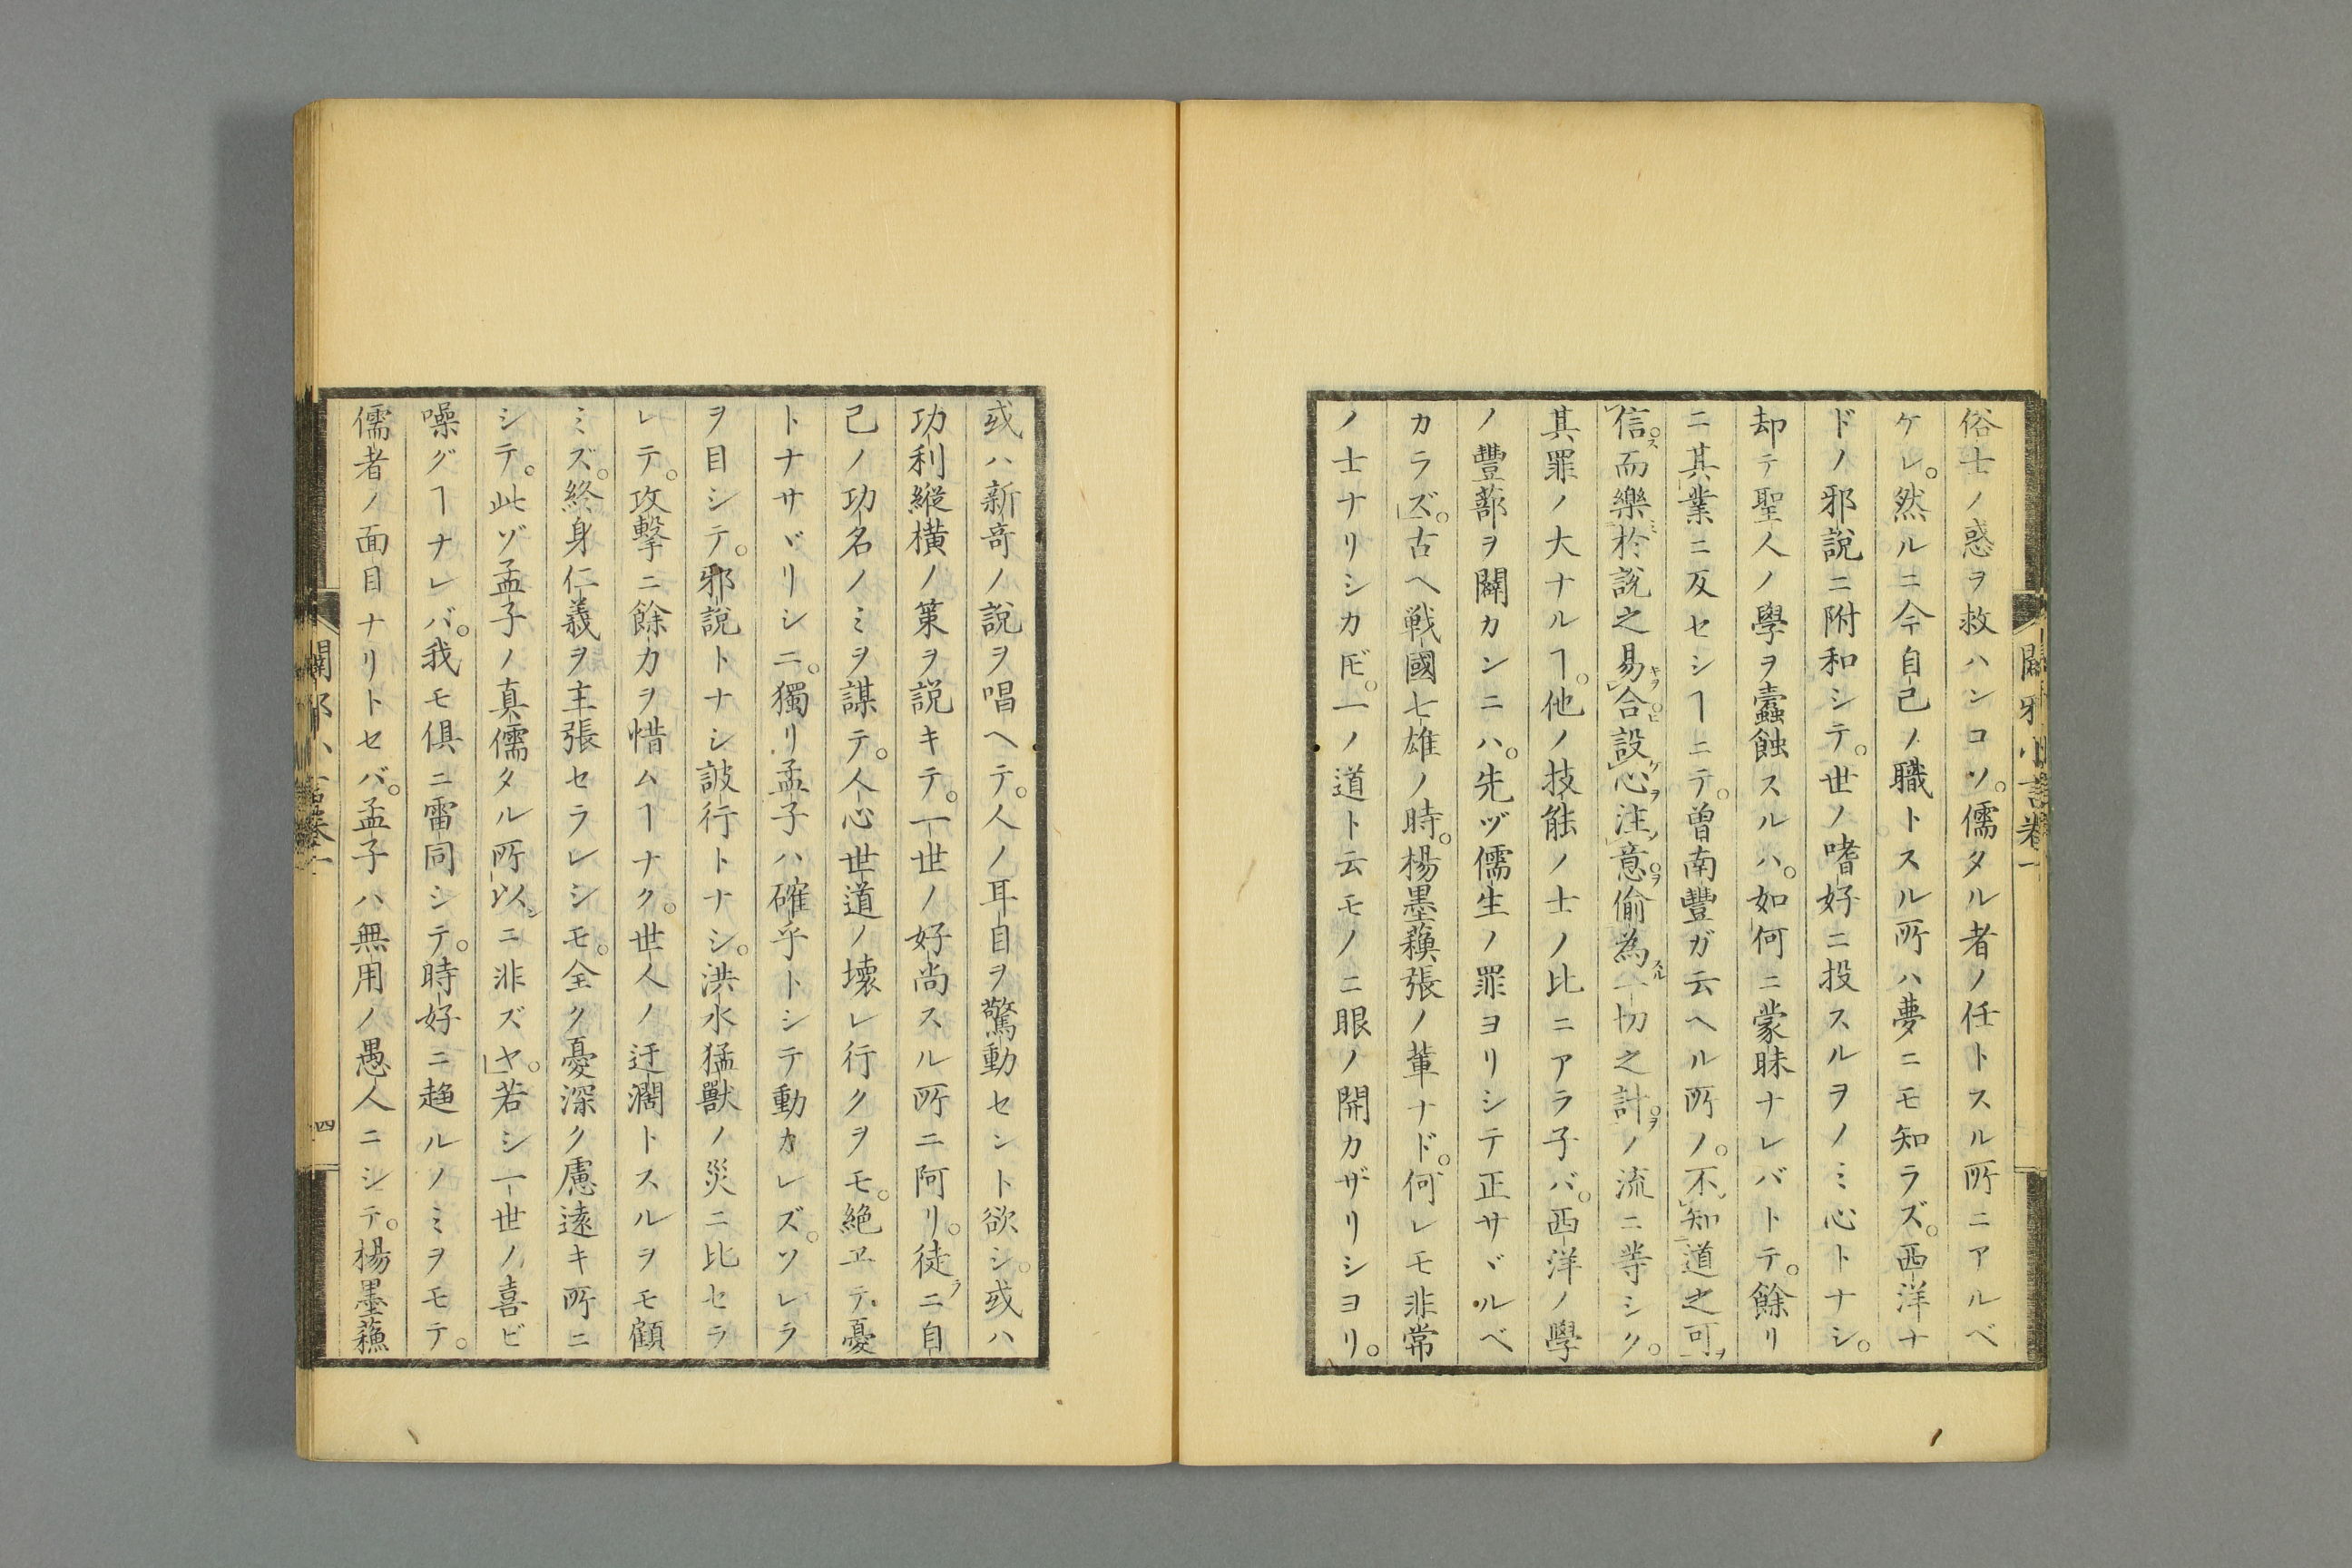 俗士ノ惑ヲ救ハンコソ。儒タル者ノ任トスル所ニアルベ
ケレ。然ルニ今自己ノ職トスル所ハ夢ニモ知ラズ。西洋ナ
ドノ邪説ニ附和シテ。世ノ嗜好ニ投スルヲノミ心トナシ。
却テ聖人ノ學ヲ蠧蝕スルハ。如何ニ蒙昧ナレバトテ。餘リ
ニ其業ニ反セシヿニテ。曽南豐ガ云ヘル所ノ。不知道之可
信而樂於説之易合設心注意偷為一切之計ノ流ニ等シク。
其罪ノ大ナルヿ。他ノ技能ノ士ノ比ニアラ子バ。西洋ノ學
ノ豐蔀ヲ闢カンニハ。先ヅ儒生ノ罪ヨリシテ正サヾルベ
カラズ。古ヘ戦國七雄ノ時。楊墨蘓張ノ輩ナド。何レモ非常
ノ士ナリシカ𪜈。一ノ道ト云モノニ眼ノ開カザリシヨリ。
闢邪小言卷一
或ハ新竒ノ説ヲ唱ヘテ。人ノ耳目ヲ驚動セント欲シ。或ハ
功利縦横ノ策ヲ説キテ。一世ノ好尚スル所ニ阿リ。徒ニ自
己ノ功名ノミヲ謀テ。人心世道ノ壊レ行クヲモ。絶ヱテ憂
トナサヾリシニ。獨リ孟子ハ確乎トシテ動カレズ。ソレラ
ヲ目シテ。邪説トナシ詖行トナシ。洪水猛獸ノ災ニ比セラ
レテ。攻擊ニ餘力ヲ惜ムヿナク。世人ノ迂濶トスルヲモ顧
ミズ。終身仁義ヲ主張セラレシモ。全ク憂深ク慮遠キ所ニ
シテ。此ゾ孟子ノ真儒タル所以ニ非ズヤ。若シ一世ノ喜ビ
噪グヿナレバ。我モ俱ニ雷同シテ。時好ニ趨ルノミヲモテ。
儒者ノ面目ナリトセバ。孟子ハ無用ノ愚人ニシテ。楊墨蘓
闢邪小言卷一 四